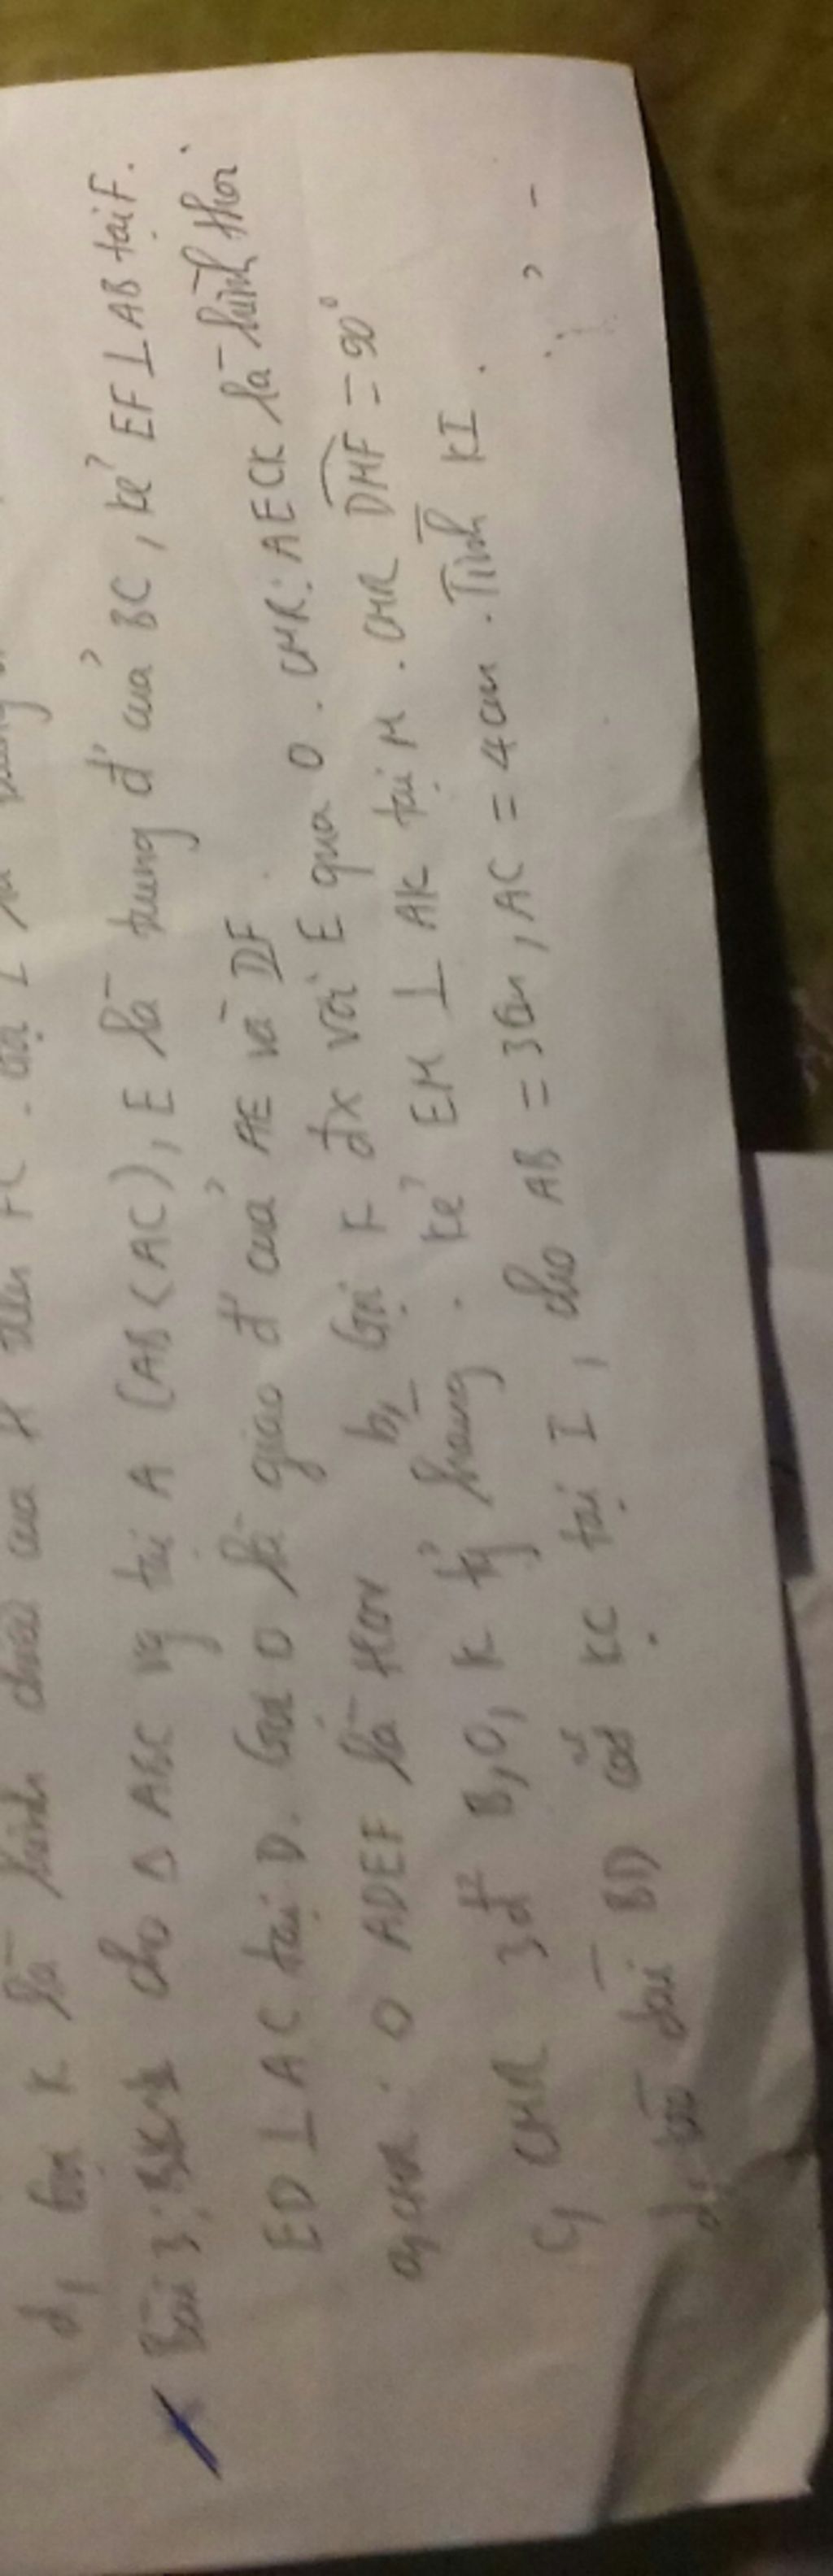 d, Gọi K là hình chiếu của H trên FC.
Bài 3: cho Δ ABC vg tại A (AB < AC), E là trung đ' của BC, kẻ EF ⊥ AB tại F.
ED ⊥ AC tại D. Gọi O là giao đ' của AE và DF.
a, CMR: ADEF là HCN b, Gọi K đx với E qua D. CMR: AECK là hình thoi.
c, CMR 3đ' B, O, K thẳng hàng. Kẻ EM ⊥ AK tại M. CMR DMF = 90°
d, kéo dài BD cắt KC tại I, cho AB = 3cm, AC = 4cm. Tính KI.